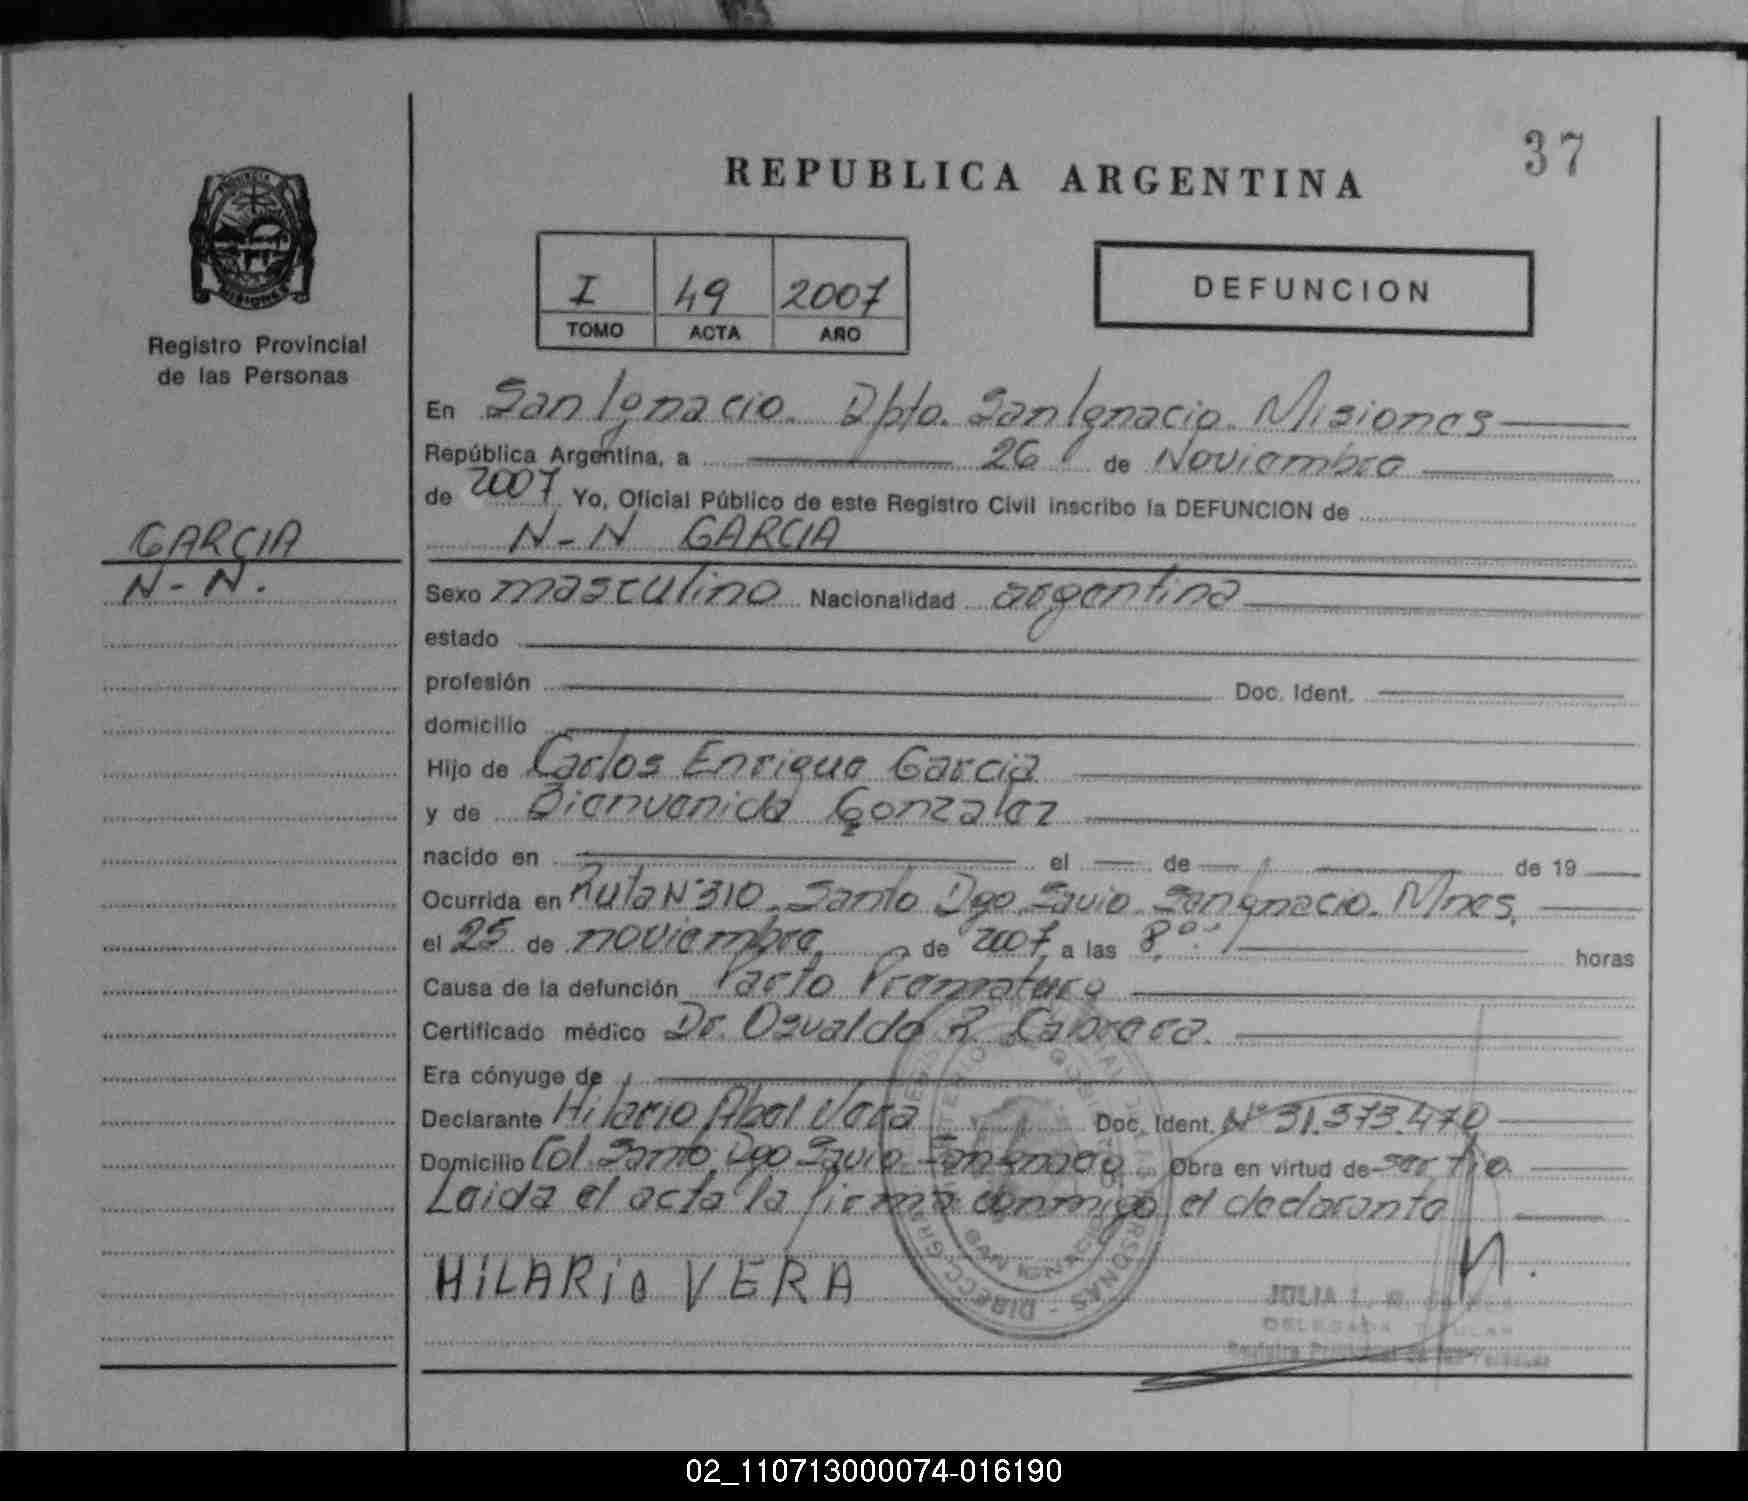 37
REPUBLICA ARGENTINA
PROVINCIA DE
MISIONES
Registro Provincial
de las Personas
I 49 2007
TOMO ACTA AÑO
DEFUNCION
En San Ignacio. Dpto. San Ignacio. Misiones
República Argentina, a 26 de Noviembre
de 2007 Yo, Oficial Público de este Registro Civil inscribo la DEFUNCION de
GARCIA
N-N.
N-N GARCIA
Sexo masculino Nacionalidad argentina
estado
profesión Doc. Ident.
domicilio
Hijo de Carlos Enrique Garcia
y de Bienvenida Gonzalez
nacido en el de de 19
Ocurrida en Ruta N°310. Santo Dgo. Savio. San Ignacio. Mnes.
el 25 de noviembre de 2007 a las 8 horas
Causa de la defunción Parto Prematuro
Certificado médico Dr. Osvaldo R. Cabrera.
Era cónyuge de
Declarante Hilario Abel Vera Doc. Ident. N° 31.373.470
Domicilio Col. Santo Dgo Savio San Ignacio Obra en virtud de ser tio.
Leida el acta la firma conmigo el declarante
HiLARio VERA
SAN IGNACIO
JULIA
DELEGADA TITULAR
Registro Provincial de las Personas
02_110713000074-016190